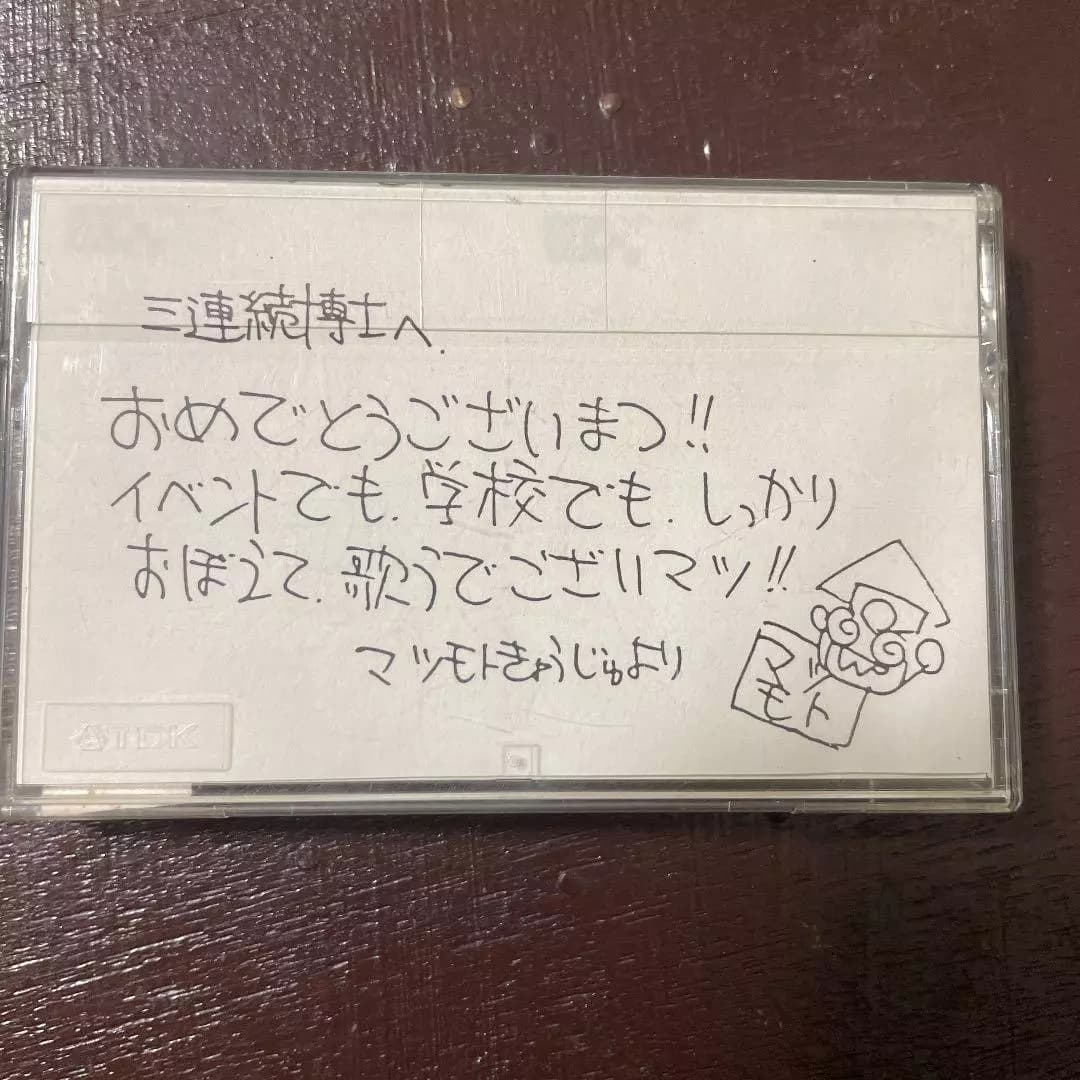 三連続博士へ.
おめでとうございまつ!!
イベントでも.学校でも.しっかり
おぼえて.歌うでございマツ!!
マツモトきょうじゅより
マツ
モト
TDK